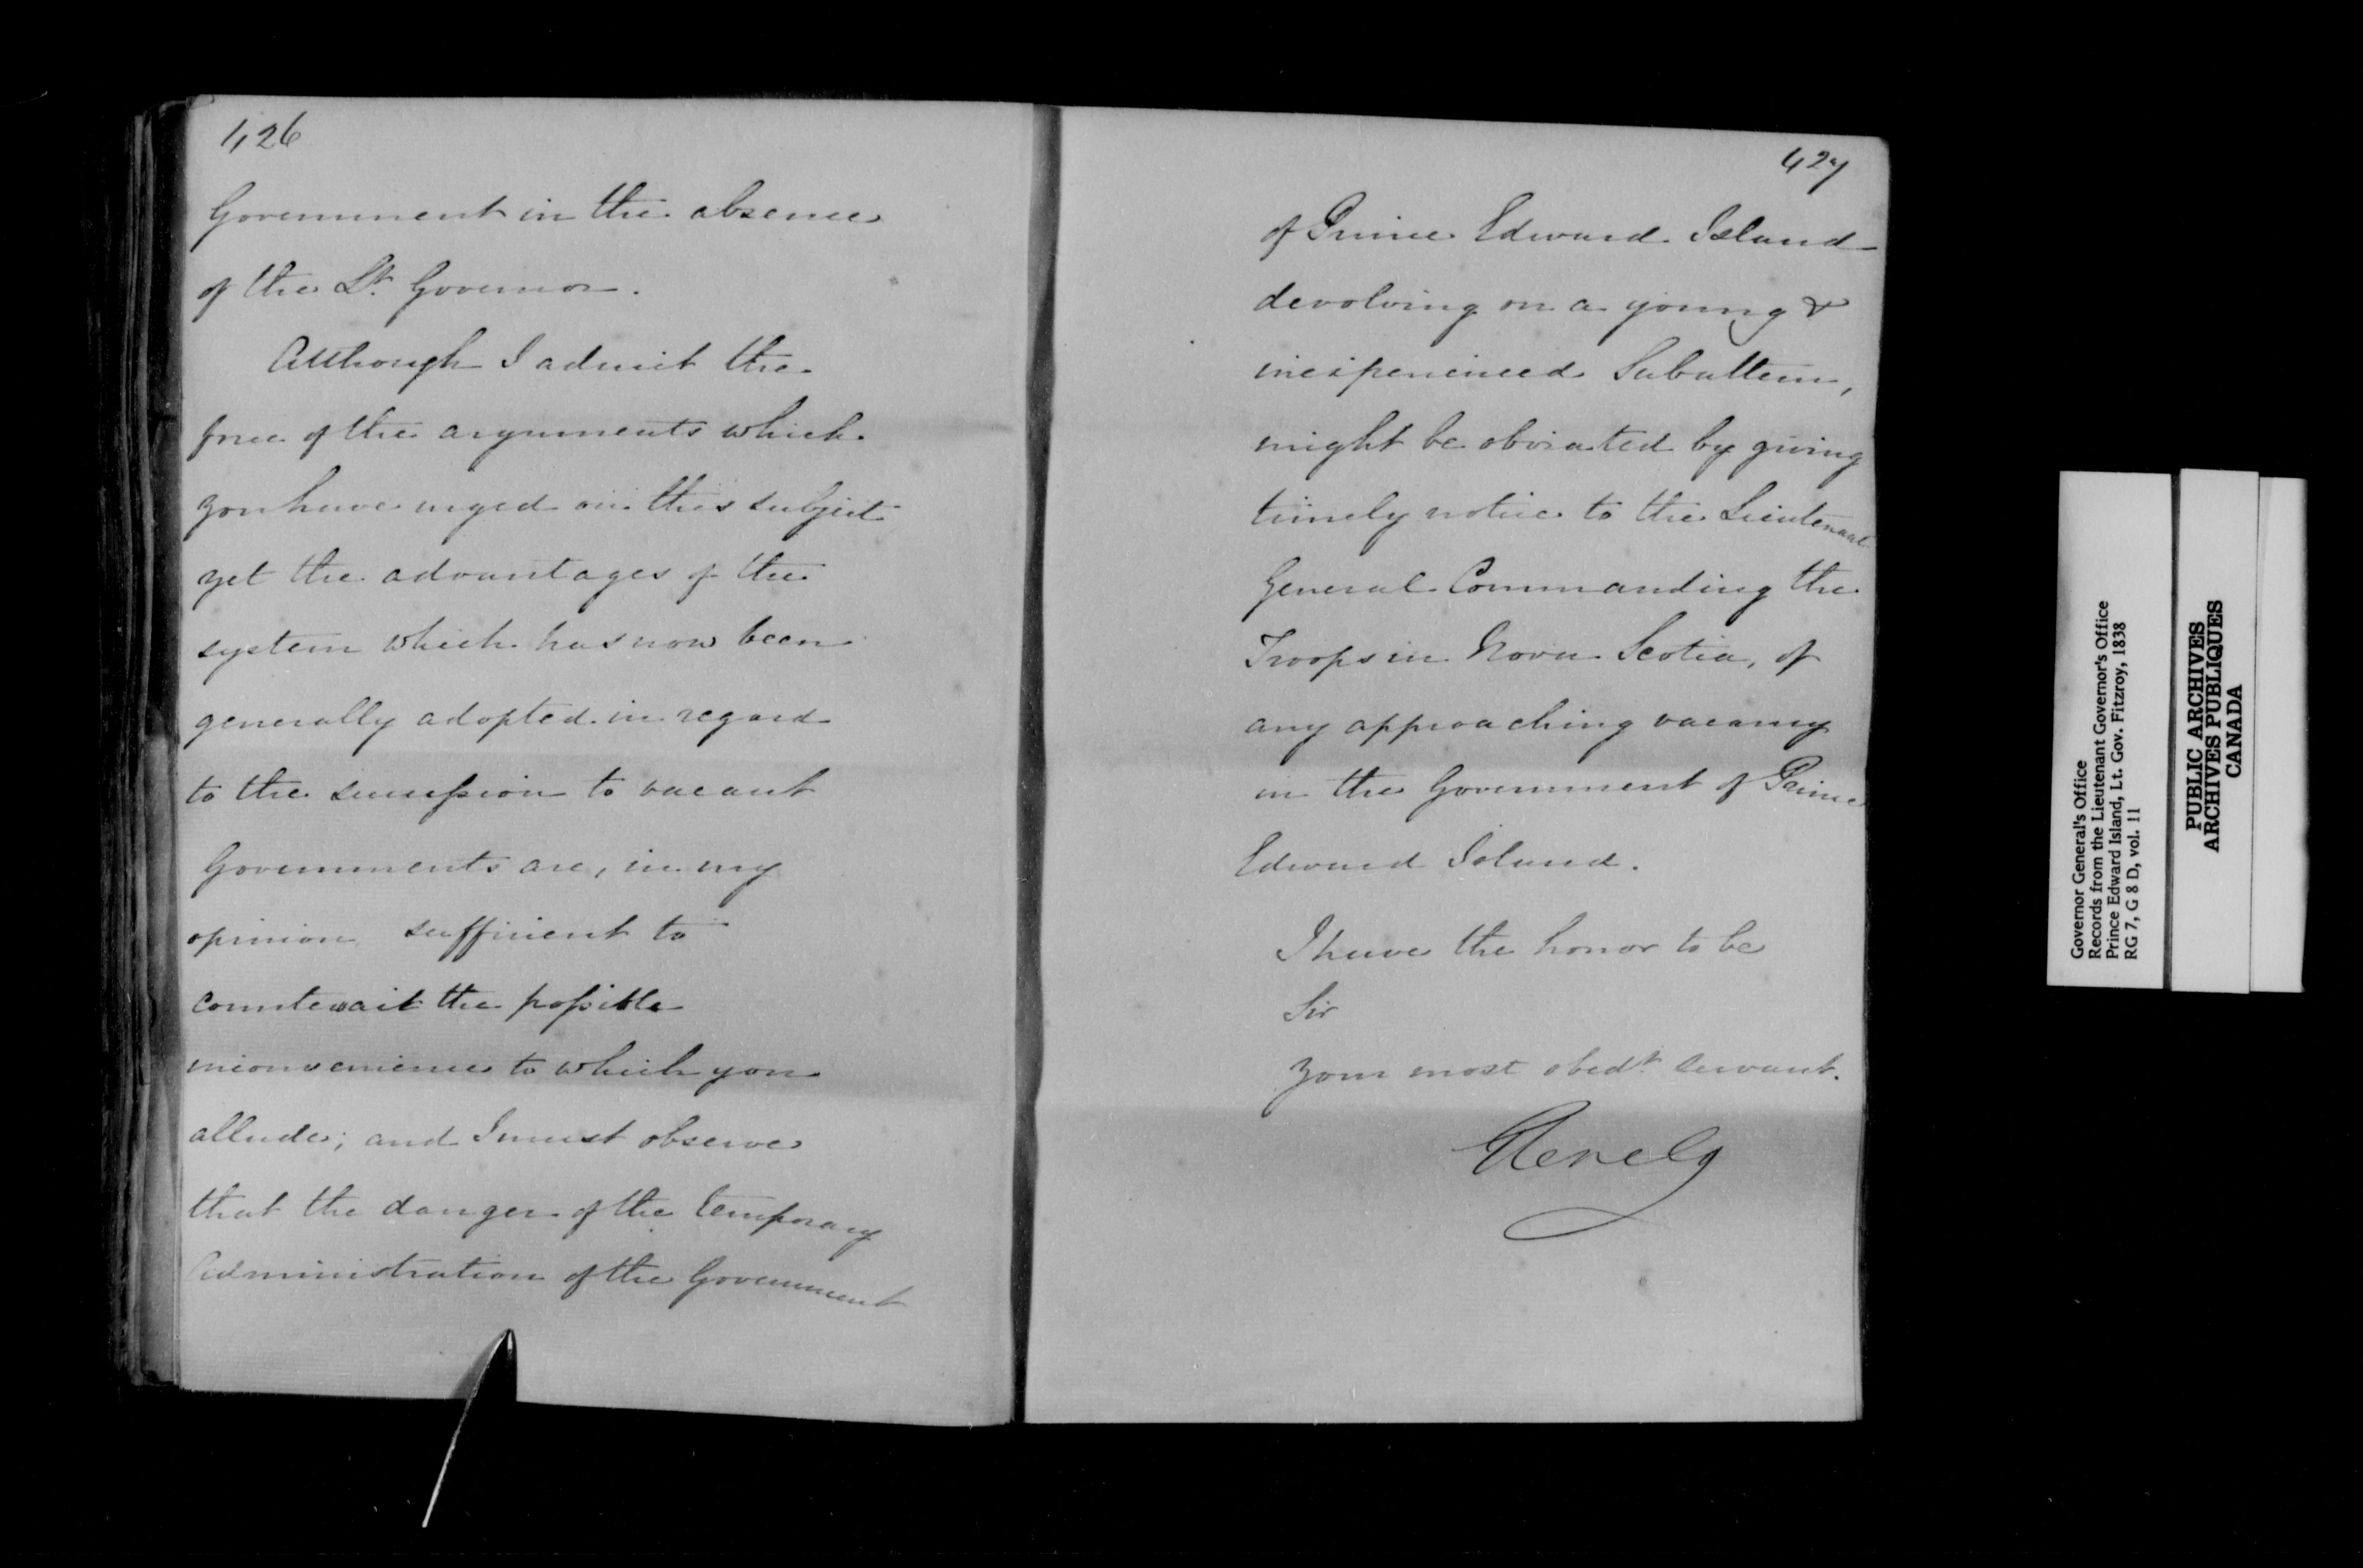 426
Government in the absence
of the Lt. Governor.
Although I admit the
force of the arguments which
you have urged on this subject
yet the advantages of the
system which has now been
generally adopted in regard
to the succession to vacant
Governments are, in my
opinion sufficient to
countervail the possible
inconvenience to which you
allude; and I must observe
that the danger of the temporary
Administration of the Government
427
of Prince Edward Island
devolving on a young &
inexperienced Subaltern,
might be obviated by giving
timely notice to the Lieutenant
General Commanding the
Troops in Nova Scotia, of
any approaching vacancy
in the Government of Prince
Edward Island.
I have the honor to be
Sir
Your most obedt. servant.
Glenelg
Governor General's Office
Records from the Lieutenant Governor's Office
Prince Edward Island, Lt. Gov. Fitzroy, 1838
RG 7, G 8 D, vol. 11
PUBLIC ARCHIVES
ARCHIVES PUBLIQUES
CANADA